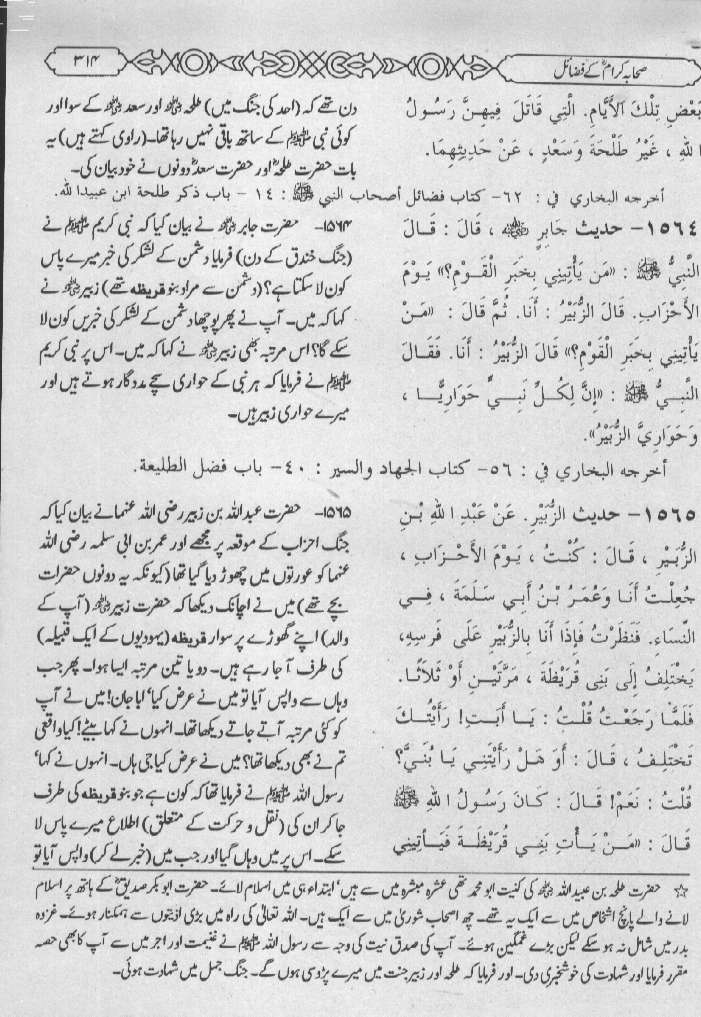 صحابہ کرامؓ کے فضائل
۳۱۴
بَعْضِ تِلْكَ الأَيَّامِ. الَّتِي قَاتَلَ فِيهِنَّ رَسُولُ
اللهِ ، غَيْرُ طَلْحَةَ وَسَعْدٍ ، عَنْ حَدِيثِهِمَا.
دن تھے کہ (احد کی جنگ میں) طلحہ ؓ اور سعد ؓ کے سوا اور
کوئی نبی ﷺ کے ساتھ باقی نہیں رہا تھا۔ (راوی کہتے ہیں) یہ
بات حضرت طلحہؓ اور حضرت سعدؓ دونوں نے خود بیان کی۔
أخرجه البخاري في : ٦٢- كتاب فضائل أصحاب النبي ﷺ : ١٤ - باب ذكر طلحة ابن عبيدا لله.
١٥٦٤- حديث جَابِرٍ ؓ ، قَالَ : قَالَ
النَّبِيُّ ﷺ : «مَن يَأْتِينِي بِخَبَرِ الْقَوْمِ؟» يَوْمَ
الأَحْزَابِ. قَالَ الزُّبَيْرُ : أَنَا. ثُمَّ قَالَ : «مَنْ
يَأْتِينِي بِخَبَرِ الْقَوْمِ؟» قَالَ الزُّبَيْرُ : أَنَا. فَقَالَ
النَّبِيُّ ﷺ : «إِنَّ لِكُلِّ نَبِيٍّ حَوَارِيًّا ،
وَحَوَارِيَّ الزُّبَيْرُ».
۱۵۶۴- حضرت جابر ؓ نے بیان کیا کہ نبی کریم ﷺ نے
(جنگ خندق کے دن) فرمایا دشمن کے لشکر کی خبر میرے پاس
کون لا سکتا ہے؟ (دشمن سے مراد بنو قریظہ تھے) زبیر ؓ نے
کہا کہ میں۔ آپ نے پھر پوچھا دشمن کے لشکر کی خبریں کون لا
سکے گا؟ اس مرتبہ بھی زبیر ؓ نے کہا کہ میں۔ اس پر نبی کریم
ﷺ نے فرمایا کہ ہر نبی کے حواری سچے مددگار ہوتے ہیں اور
میرے حواری زبیر ہیں۔
أخرجه البخاري في : ٥٦- كتاب الجهاد والسير : ٤٠- باب فضل الطليعة.
١٥٦٥- حديث الزُّبَيْرِ. عَنْ عَبْدِ اللهِ بْنِ
الزُّبَيْرِ ، قَالَ : كُنْتُ ، يَوْمَ الأَحْزَابِ ،
جُعِلْتُ أَنَا وَعُمَرُ بْنُ أَبِي سَلَمَةَ ، فِي
النِّسَاءِ. فَنَظَرْتُ فَإِذَا أَنَا بِالزُّبَيْرِ عَلَى فَرَسِهِ،
يَخْتَلِفُ إِلَى بَنِي قُرَيْظَةَ ، مَرَّتَيْنِ أَوْ ثَلَاثًا.
فَلَمَّا رَجَعْتُ قُلْتُ : يَا أَبَتِ! رَأَيْتُكَ
تَخْتَلِفُ ، قَالَ : أَوَ هَلْ رَأَيْتَنِي يَا بُنَيَّ؟
قُلْتُ : نَعَمْ! قَالَ : كَانَ رَسُولُ اللهِ ﷺ
قَالَ : «مَنْ يَأْتِ بَنِي قُرَيْظَةَ فَيَأْتِينِي
۱۵۶۵- حضرت عبداللہ بن زبیر رضی اللہ عنہما نے بیان کیا کہ
جنگ احزاب کے موقعہ پر مجھے اور عمر بن ابی سلمہ رضی اللہ
عنہما کو عورتوں میں چھوڑ دیا گیا تھا (کیونکہ یہ دونوں حضرات
بچے تھے) میں نے اچانک دیکھا کہ حضرت زبیر ؓ (آپ کے
والد) اپنے گھوڑے پر سوار قریظہ (یہودیوں کے ایک قبیلہ)
کی طرف آ جا رہے ہیں۔ دو یا تین مرتبہ ایسا ہوا۔ پھر جب
وہاں سے واپس آیا تو میں نے عرض کیا' ابا جان! میں نے آپ
کو کئی مرتبہ آتے جاتے دیکھا تھا۔ انہوں نے کہا بیٹے! کیا واقعی
تم نے بھی دیکھا تھا؟ میں نے عرض کیا جی ہاں۔ انہوں نے کہا'
رسول اللہ ﷺ نے فرمایا تھا کہ کون ہے جو بنو قریظہ کی طرف
جا کر ان کی (نقل و حرکت کے متعلق) اطلاع میرے پاس لا
سکے۔ اس پر میں وہاں گیا اور جب میں (خبر لے کر) واپس آیا تو
☆ حضرت طلحہ بن عبیداللہ ؓ کی کنیت ابو محمد تھی عشرہ مبشرہ میں سے ہیں' ابتداء ہی میں اسلام لائے۔ حضرت ابوبکر صدیقؓ کے ہاتھ پر اسلام
لانے والے پانچ اشخاص میں سے ایک یہ تھے۔ چھ اصحاب شوریٰ میں سے ایک ہیں۔ اللہ تعالیٰ کی راہ میں بڑی اذیتوں سے ہمکنار ہوئے۔ غزوہ
بدر میں شامل نہ ہو سکے لیکن بڑے غمگین ہوئے۔ آپ کی صدق نیت کی وجہ سے رسول اللہ ﷺ نے غنیمت اور اجر میں سے آپ کا بھی حصہ
مقرر فرمایا اور شہادت کی خوشخبری دی۔ اور فرمایا کہ طلحہ اور زبیر جنت میں میرے پڑوسی ہوں گے۔ جنگ جمل میں شہادت ہوئی۔